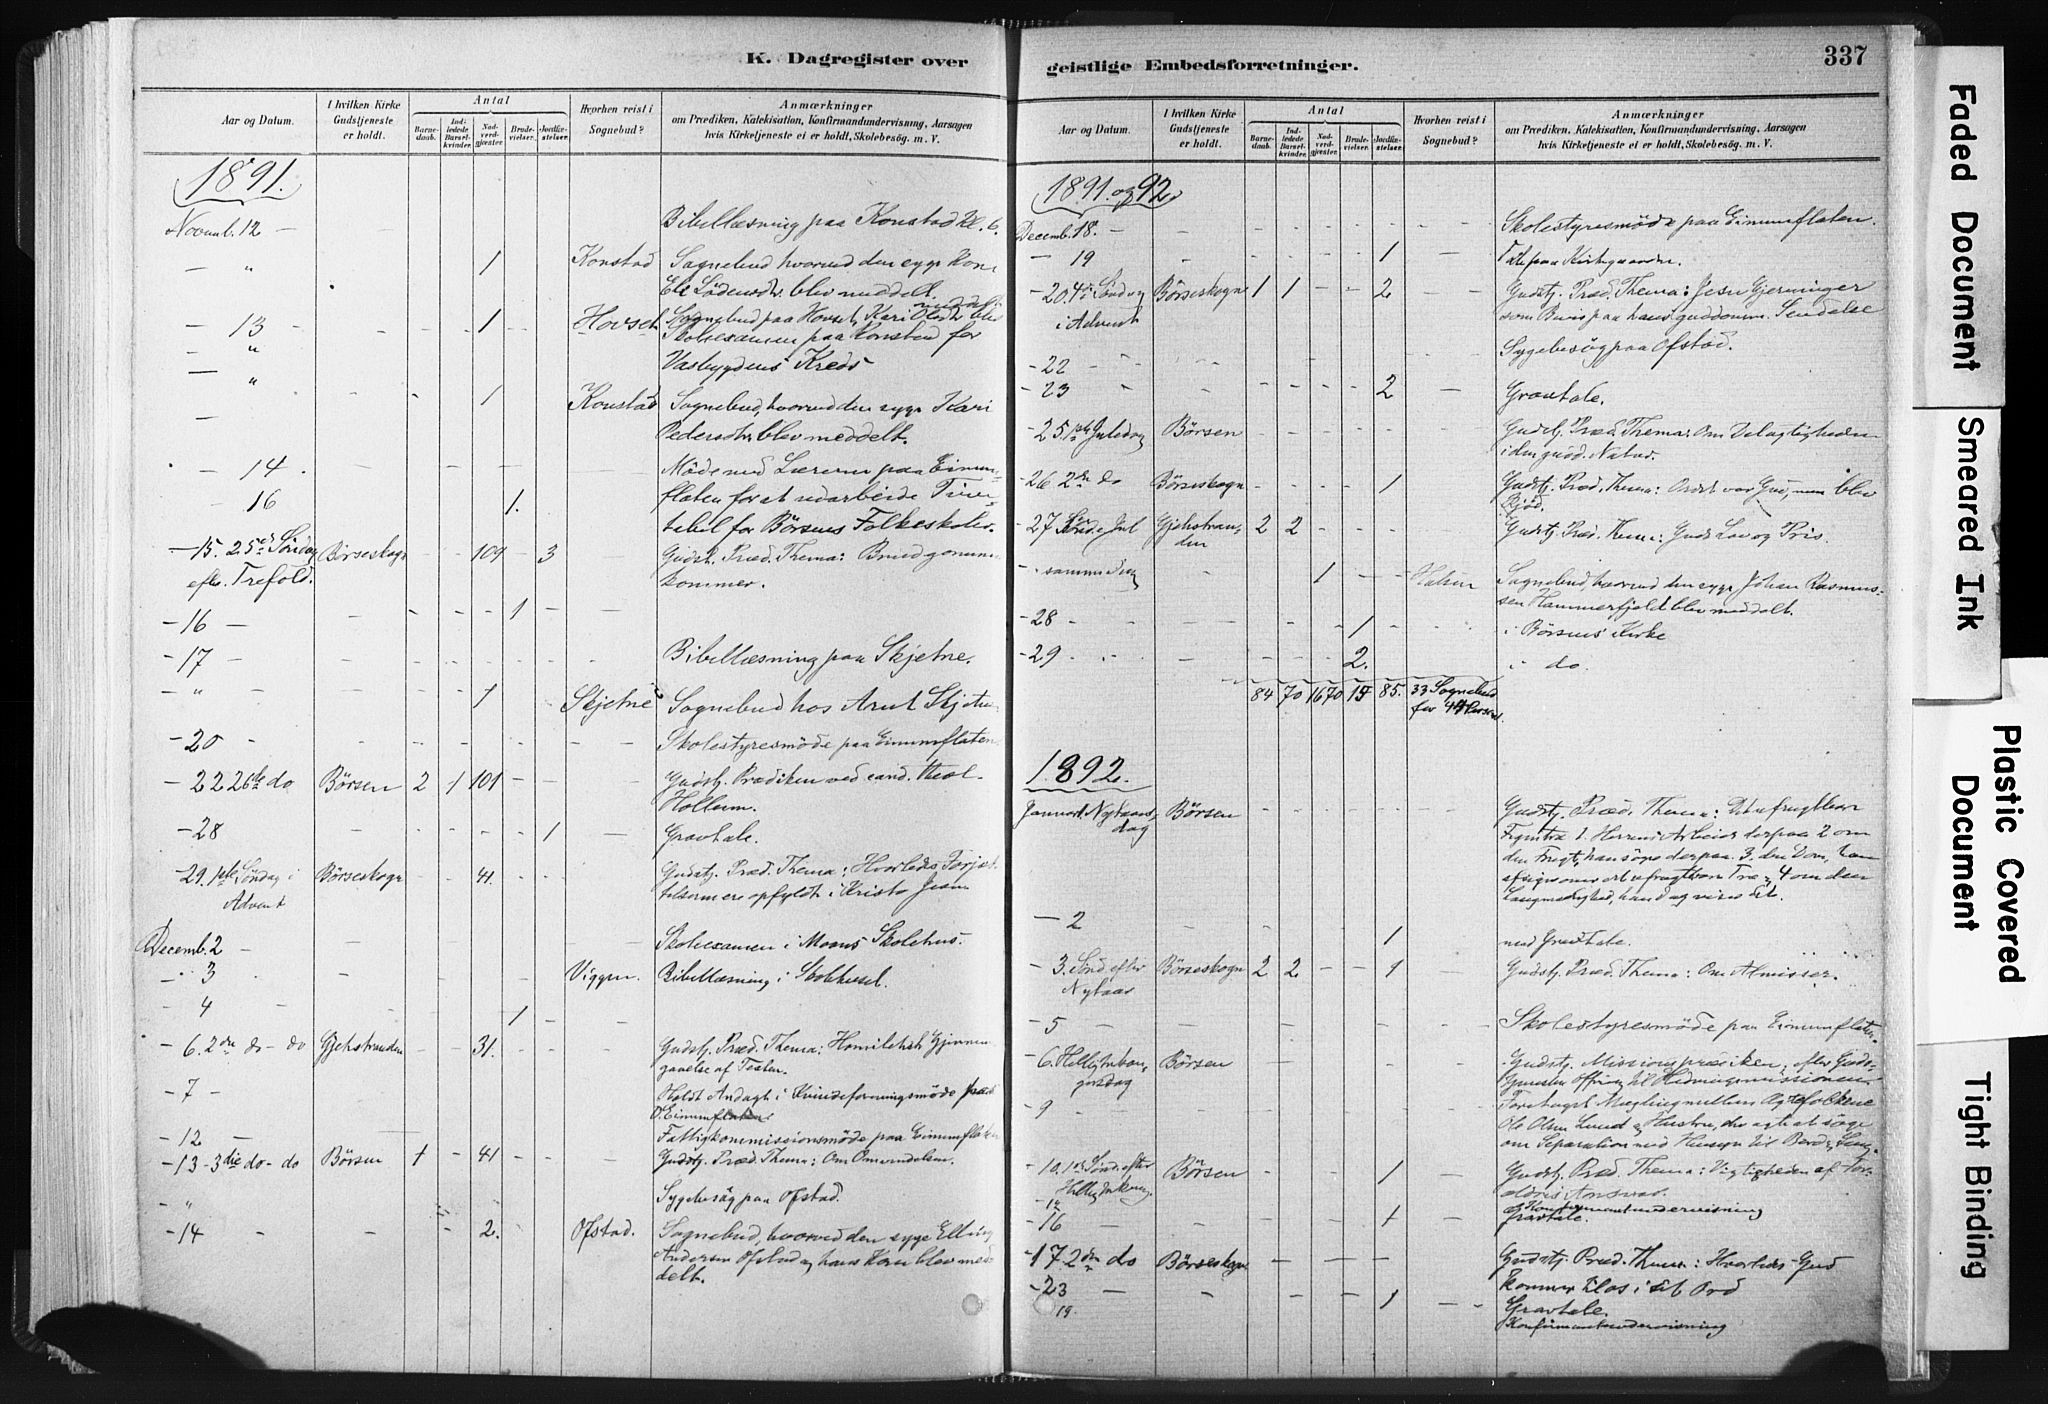 K. Dagregister over
Aar og Datum.
I hvilken Kirke Gudstjeneste er holdt.
Antal
Barnedaab.
Indledede Barselkvinder.
Nadverdgjæster.
Brudevielser.
Jordfæstelser.
Hvorhen reist i Sognebud?
Anmærkninger
om Prædiken, Katekisation, Konfirmandundervisning, Aarsagen
hvis Kirketjeneste ei er holdt, Skolebesøg. m. V.
1891.
Novemb. 12 — Bibellæsning paa Konstad Kl. 6.
— " 1 Konstad Sognebud hvorved den syge Kone
blev meddelt.
— 13 — 1 Hovset Sognebud paa Hovset, Kari blev meddelt
— " Skoleexamen paa Konstad for
Vasbygdens Kreds
— " 1 Konstad Sognebud, hvorved den syge Kari
Pedersdtr. blev meddelt.
— 14 Møde med Lærerne paa Eimun-
— 16 1. flaten for at udarbeide Time-
tabel for Børsens Folkeskoler.
— 15. 25de Søndag Børseskogn — — 109 — 3 Gudst. Præd. Thema: Brudgommen
efter Trefold. kommer.
— 16 — 1
— 17 — Bibellæsning paa Skjetne.
— " 1 Skjetne Sognebud hos Arnt Skjetne
— 20 Skolestyresmöde paa Eimunsflaten
— 22 26de do Börsen 2 1 101 — Gudstj. Prædiken ved cand. theol.
Hollum.
— 28 1 Gravtale.
— 29. 1ste Søndag i Børseskogn 41. Gudstj. Præd. Thema: Hvorledes Forjæt-
Advent telserne ere opfyldt i Kristo Jesu
Decemb. 2 — Skoleexamen i Moans Skolehus.
— 3 Viggen. Bibellæsning i Skolehuset.
— 4 1
— 6. 2den do — do Gjehstranden — — 31. Gudstj. Præd. Thema: Homiletisk Gjennem-
gaaelse af Texten.
— 7 — Holdt Andagt i Kvindeforeningsmøde
Eimunsflaten
— 12 — Fattigkommissionsmøde paa Eimunsflaten
— 13 — 3die do — do Börsen 1 — 41 — Gudstj. Præd. Thema: Om Omvendelsen.
— " Sygebesøg paa Ofstad.
— 14 2. Ofstad. Sognebud, hvorved den syge Elling
Andersen Ofstad og hans Kone blev med-
delt.
geistlige Embedsforretninger.
337
Aar og Datum.
I hvilken Kirke Gudstjeneste er holdt.
Antal
Barnedaab.
Indledede Barselkvinder.
Nadverdgjæster.
Brudevielser.
Jordfæstelser.
Hvorhen reist i Sognebud?
Anmærkninger
om Prædiken, Katekisation, Konfirmandundervisning, Aarsagen
hvis Kirketjeneste ei er holdt, Skolebesøg. m. V.
1891. og 92.
Decemb. 18. — Skolestyresmöde paa Eimunsflaten.
— 19 1 — Tale paa Kirkegaarden.
— 20. 4de Söndag Börseskogn 1 1 — — 2 Gudstj. Præd. Thema: Jesu Gjerninger
i Advent som Bevis paa hans guddomm. Sendelse
— 22 Sygebesøg paa Ofstad.
— 23 2 — Gravtale.
— 25. 1ste Juledag Börsen Gudstj. Præd. Thema: Om Delagtigheden
i den gudd. Natur.
— 26 2den do Börseskogn 1 Gudstj. Præd. Thema: Ordet var Gud, men blev
Kjød.
— 27 Sønd e Jul Gjehstran- 2 2 Gudstj. Præd. Thema: Guds Lov og Pris.
den
— samme dag 1 — — Halsen Sognebud, hvorved den syge Johan Rasmus-
sen Hammerfjeld blev meddelt.
— 28 1 i Börsens Kirke
— 29 2. i do.
84 70 1670 15 85. 33 Sognebud
for 44 Personer
1892.
Januar 1. Nytaars- Börsen Gudstj. Præd. Thema: Det ufrugtbare
dag Figentræ 1. Herrens Arbeide derpaa 2 om
den Frugt, han søgte derpaa. 3. den Dom, han
afsiger over det ufrugtbare Træ, 4 om den
Langmodighed, han dog viser det.
— 2 1 med Gravtale.
— 3. Sønd efter Börseskogn 2 2 — — 1 Gudstj. Præd. Thema: Om Almisser.
Nytaar
— 5 — Skolestyresmöde paa Eimunsflaten.
— 6. Hellig trekon- Börsen Gudstj. Missionsprædiken, efter Guds-
gersdag tjenesten Offring til Hedningemissionen.
— 9 Foretaget Mægling mellem Ægtefolkene
Ole Olsen Lund og Hustru, der agte at søge
om Separation med Hensyn til Bord og Seng.
— 10. 1ste Sönd. efter Börsen 1 Gudstj. Præd. Thema: Vigtigheden af For-
Hellig trekong. ældres Ansvar.
— 12 Konfirmantundervisning
— 16 1 Gravtale.
— 17 2den do Börseskogn Gudstj. Præd. Thema: Hvorledes Gud
— 23 kommer til os i sit Ord
1 Gravtale.
19. Konfirmantundervisning
Faded Document
Smeared Ink
Plastic Covered Document
Tight Binding